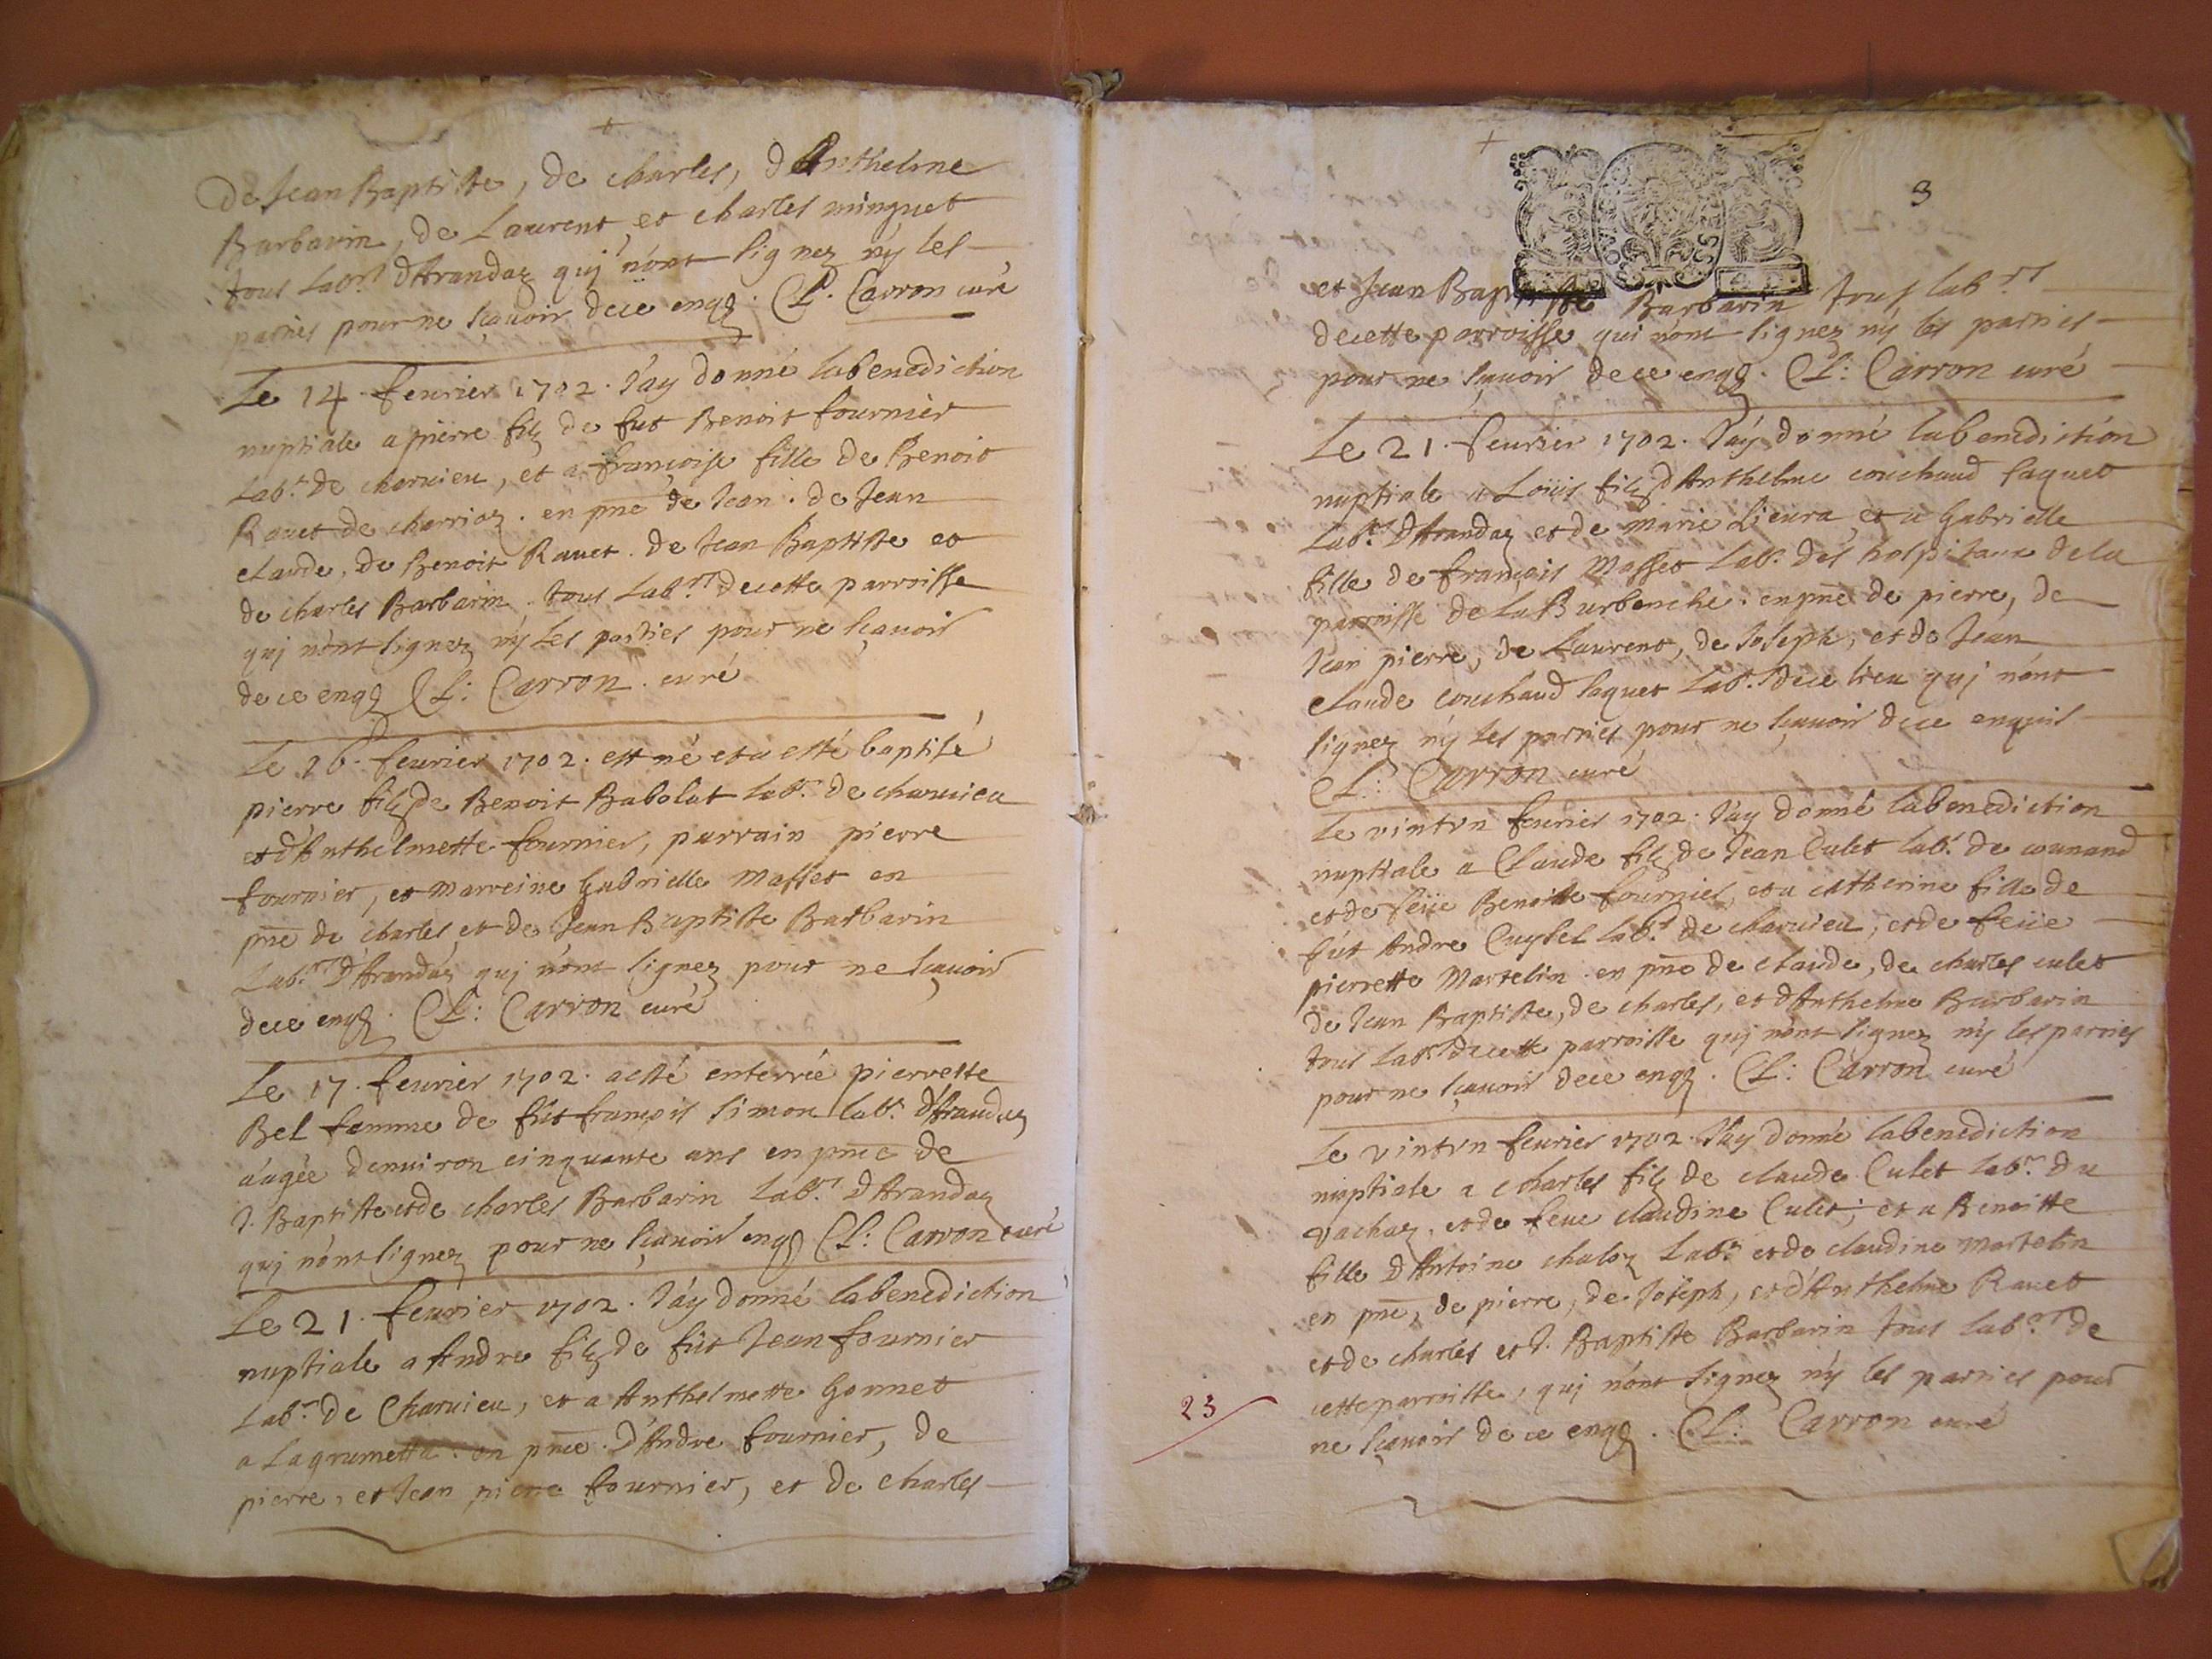 de Jean Baptiste, de charles, d'Anthelme
Barbarin, de Laurent, et charles minguet
tous Labrs d'Arandaz quj n'ont signez ny les
parties pour ne scauoir de ce enqs. Cl. Carron curé
Le 14. feurier 1702. J'ay donné la benediction
nuptiale a pierre filz de fut Benoit fournier
Labr. de charuieu, et a françoise fille de Benoit
Rauet de charrioz. en pnce de Jean. de Jean
claude, de Benoit Rauet. de Jean Baptiste et
de charles Barbarin. tous Labrs de cette parroisse
quj n'ont signez ny les parties pour ne scauoir
de ce enqs Cl: Carron. curé
Le 16. feurier 1702. est né et a esté baptisé
pierre filz de Benoit Babolat labr. de charuieu
et d'Anthelmette fournier, parrain pierre
fournier, et marreine Gabrielle Masset en
pnce de charles et de Jean Baptiste Barbarin
Labrs d'Arandaz quj n'ont signez pour ne scauoir
de ce enqs. Cl: Carron curé
Le 17. feurier 1702. a esté enterrée pierrette
Bel femme de fut françois simon labr. d'Arandaz
aagée d'enuiron cinquante ans en pnce de
J. Baptiste et de charles Barbarin Labrs d'Arandaz
quj n'ont signez pour ne scauoir enqs Cl: Carron curé
Le 21. feurier 1702. J'ay donné la benediction
nuptiale a Andre filz de fut Jean fournier
Labr. de Charuieu, et a Anthelmette Gonnet
a Lagrumetta. en pnce. d'Andre fournier, de
pierre, et Jean pierre fournier, et de charles
3
et Jean Baptiste Barbarin tous labrs
de cette parroisse qui n'ont signez ny les parties
pour ne scauoir de ce enqs. Cl: Carron curé
Le 21. feurier 1702. J'ay donné la benediction
nuptiale a Loüis filz d'Anthelme couchaud saquet
Labr. d'Arandaz et de marie Lieura et a Gabrielle
fille de françois Masset Labr. des hospitaux de la
parroisse de La Burbenche. en pnce de pierre, de
Jean pierre, de Laurent, de Joseph, et de Jean
claude couchaud saquet Labrs de ce lieu quj n'ont
signez ny les parties pour ne scauoir de ce enquis
Cl: Carron curé
Le vintvn feurier 1702. J'ay donné la benediction
nuptiale a Claude filz de Jean Culet labr. de counand
et de feüe Benoitte fournier, et a catherine fille de
fut Andre Cuysel labr. de charuieu, et de feüe
pierrette Martelin. en pnce de claude, de charles culet
de Jean Baptiste, de charles, et d'Anthelme Barbarin
tous Labrs de cette parroisse quj n'ont signez ny les parties
pour ne scauoir de ce enqs. Cl: Carron curé
Le vintvn feurier 1702. J'ay donné la benediction
nuptiale a charles filz de claude Culet labr. du
vachaz. et de feue claudine Culet, et a Benoitte
fille d'Antoine chaloz Labr. et de claudine martelin
en pnce, de pierre, de Joseph, et d'Anthelme Rauet
et de charles et J. Baptiste Barbarin tous labrs de
cette parroisse, quj n'ont signez ny les parties pour
ne scauoir de ce enqs. Cl: Carron curé
23